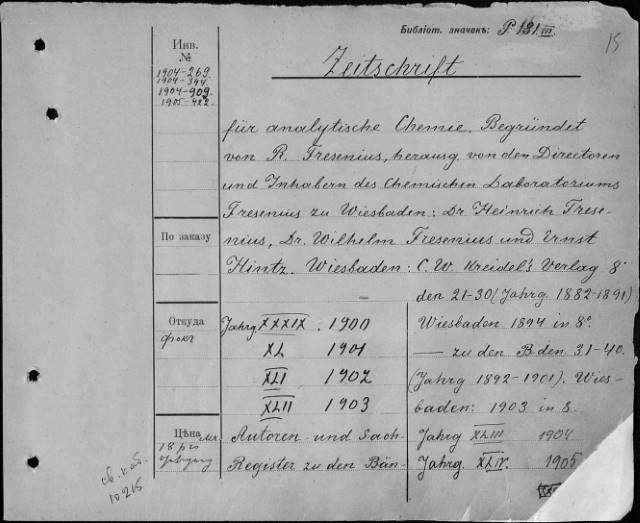 Библіот. значекъ: P 191 III
15
Инв.
№
1904-269.
1904-394
1904-909.
1905-422
Zeitschrift
für analytische Chemie. Begründet
von R. Fresenius, herausg. von den Directoren
und Inhabern des Chemischen Laboratoriums
Fresenius zu Wiesbaden: Dr. Heinrich Frese-
nius, Dr. Wilhelm Fresenius und Ernst
Hintz. Wiesbaden: C. W. Kreidel's Verlag 8°
По заказу
Откуда
фокт
Цѣна
18
Jahrg XXXIX. 1900
XL 1901
XLI 1902
XLII 1903
Autoren- und Sach-
Register zu den Bän-
den 21-30 (Jahrg. 1882-1891)
Wiesbaden 1894 in 8°.
— zu den B-den 31-40.
(Jahrg 1892-1901). Wies-
baden: 1903 in 8.
Jahrg XLIII. 1904
Jahrg. XLIV. 1905
св. каб.
10215